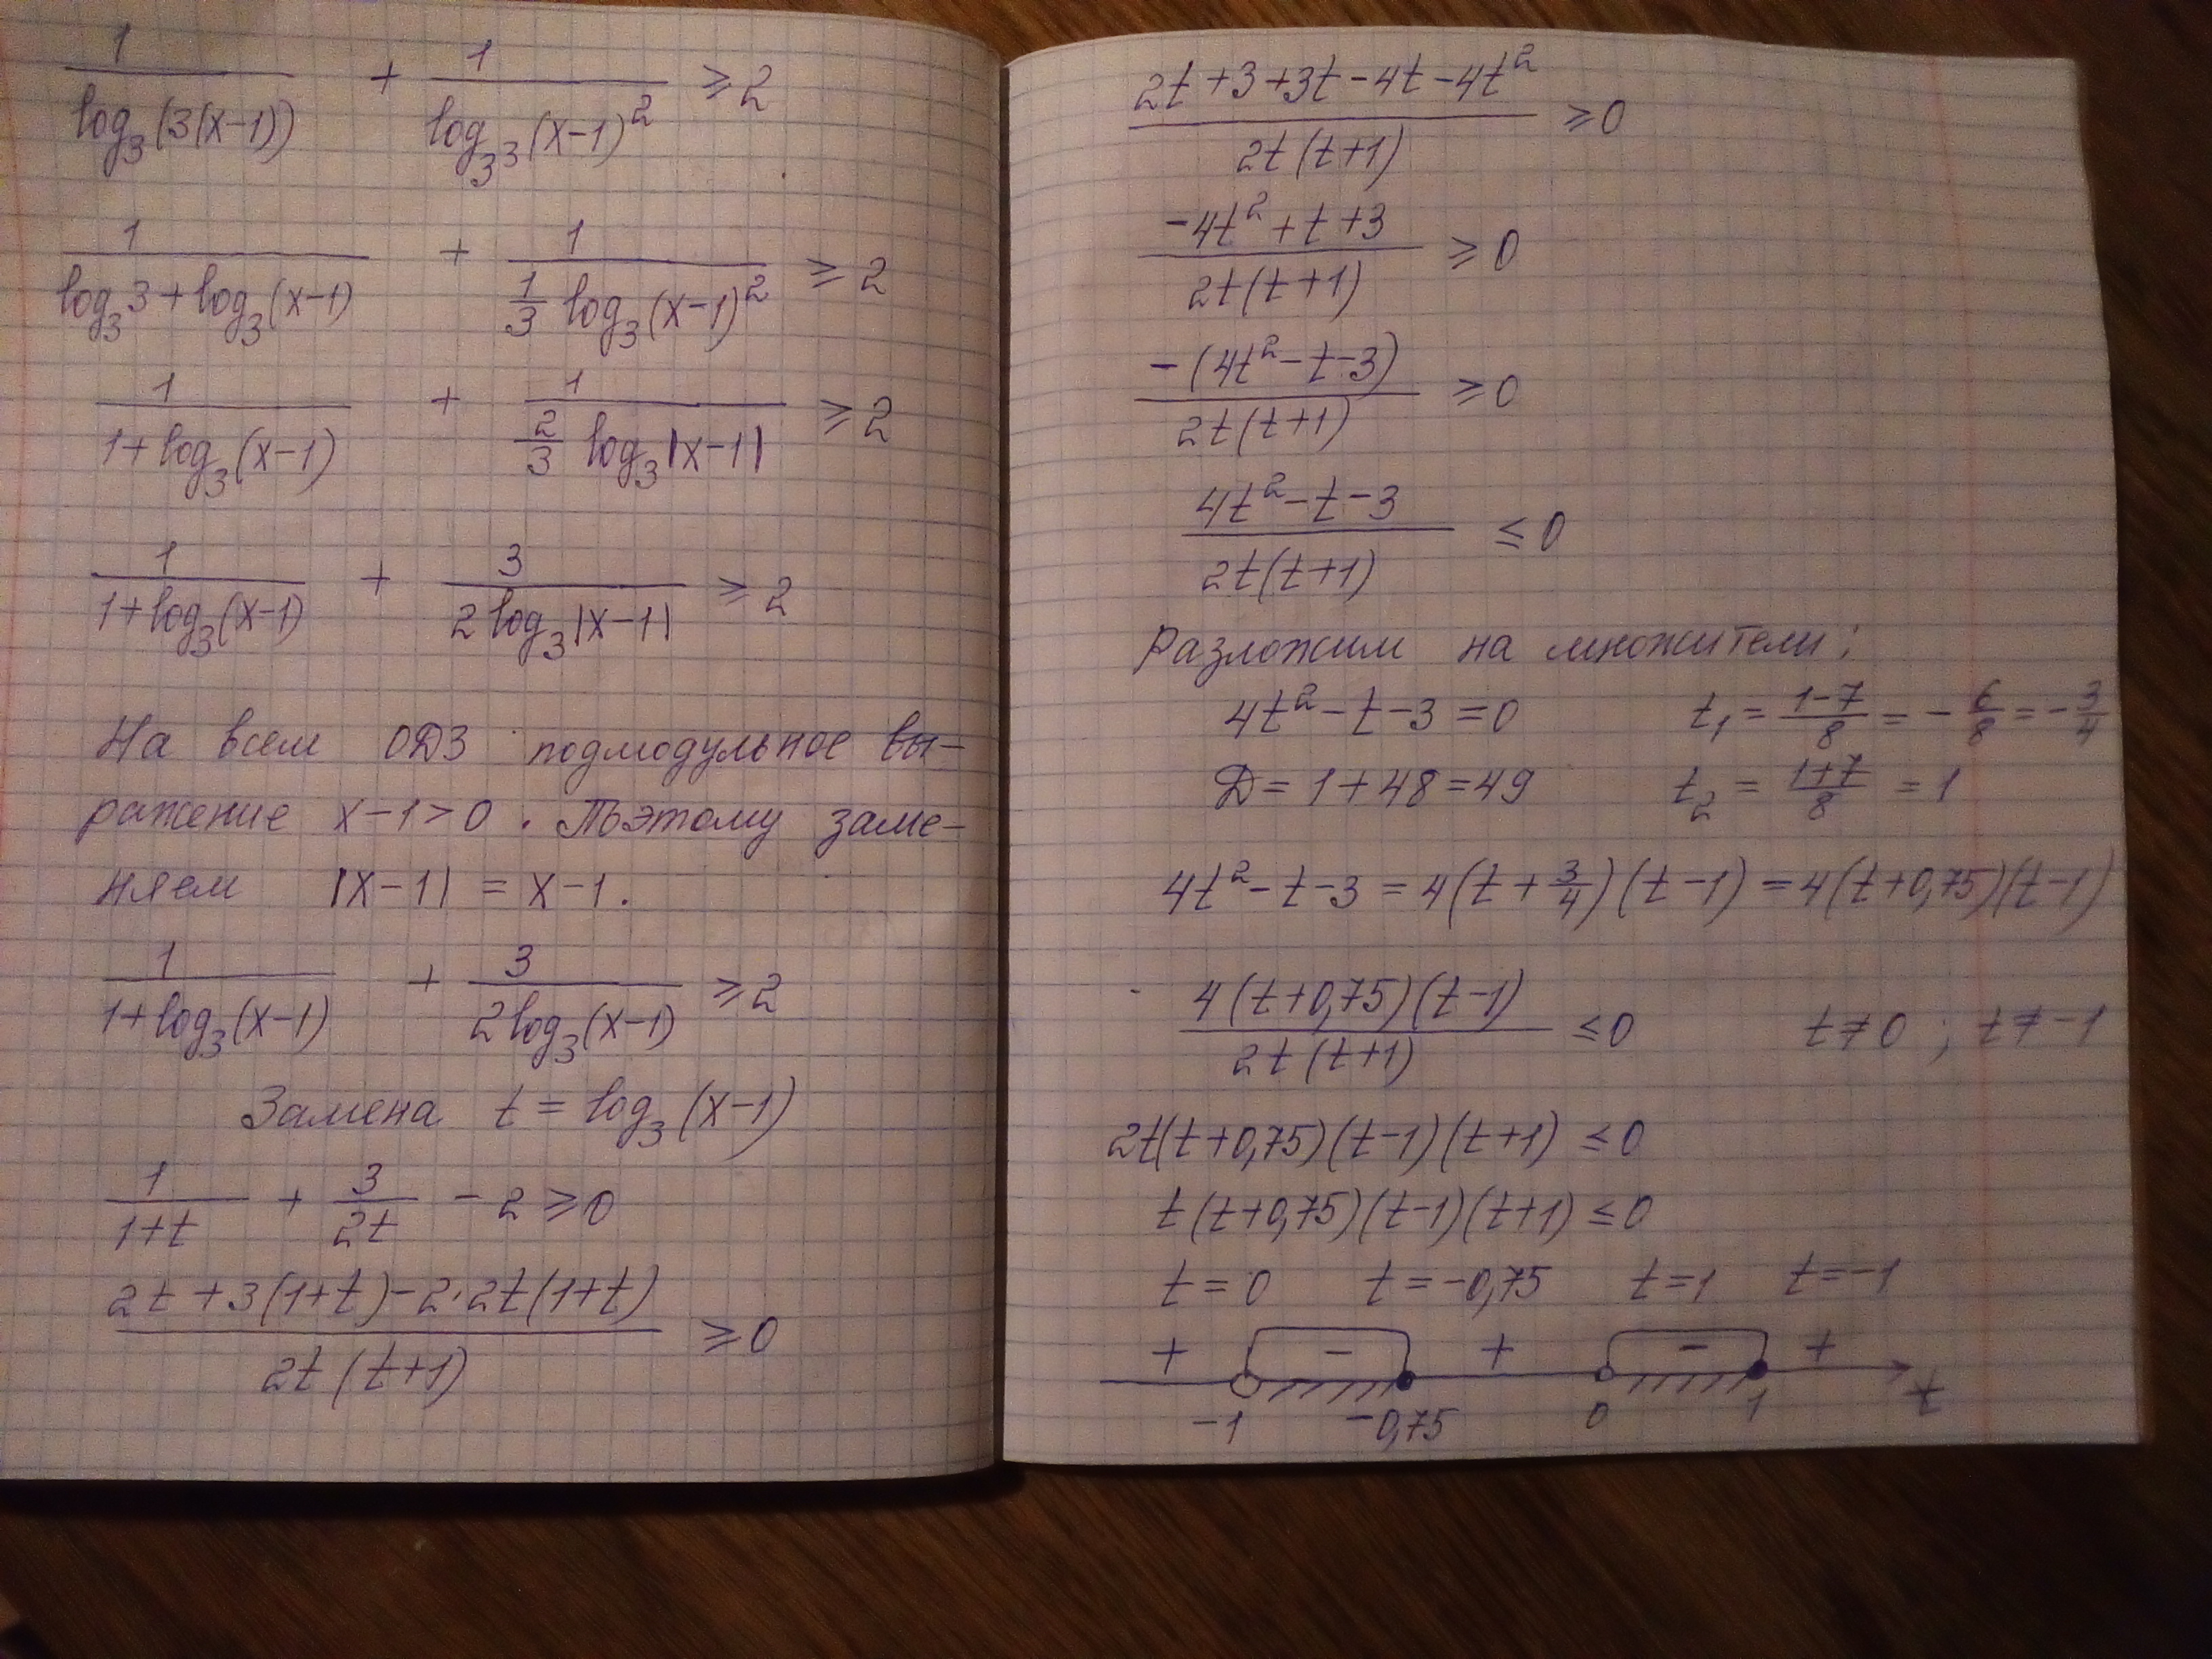 1/log₃(3(x-1)) + 1/log₃³(x-1)² ≥ 2
1/(log₃3 + log₃(x-1)) + 1/(1/3 log₃(x-1)²) ≥ 2
1/(1+log₃(x-1)) + 1/(2/3 log₃|x-1|) ≥ 2
1/(1+log₃(x-1)) + 3/(2log₃|x-1|) ≥ 2
На всем ОДЗ подмодульное вы-
ражение x-1>0. Поэтому заме-
няем |x-1| = x-1.
1/(1+log₃(x-1)) + 3/(2log₃(x-1)) ≥ 2
Замена t = log₃(x-1)
1/(1+t) + 3/(2t) - 2 ≥ 0
(2t+3(1+t)-2·2t(1+t))/(2t(t+1)) ≥ 0
(2t+3+3t-4t-4t²)/(2t(t+1)) ≥ 0
(-4t²+t+3)/(2t(t+1)) ≥ 0
-(4t²-t-3)/(2t(t+1)) ≥ 0
(4t²-t-3)/(2t(t+1)) ≤ 0
Разложим на множители:
4t²-t-3=0 t₁ = (1-7)/8 = -6/8 = -3/4
Д = 1+48=49 t₂ = (1+7)/8 = 1
4t²-t-3 = 4(t+3/4)(t-1) = 4(t+0,75)(t-1)
4(t+0,75)(t-1)/(2t(t+1)) ≤ 0 t≠0; t≠-1
2t(t+0,75)(t-1)(t+1) ≤ 0
t(t+0,75)(t-1)(t+1) ≤ 0
t=0 t=-0,75 t=1 t=-1
+ - + - +
-1 -0,75 0 1 t